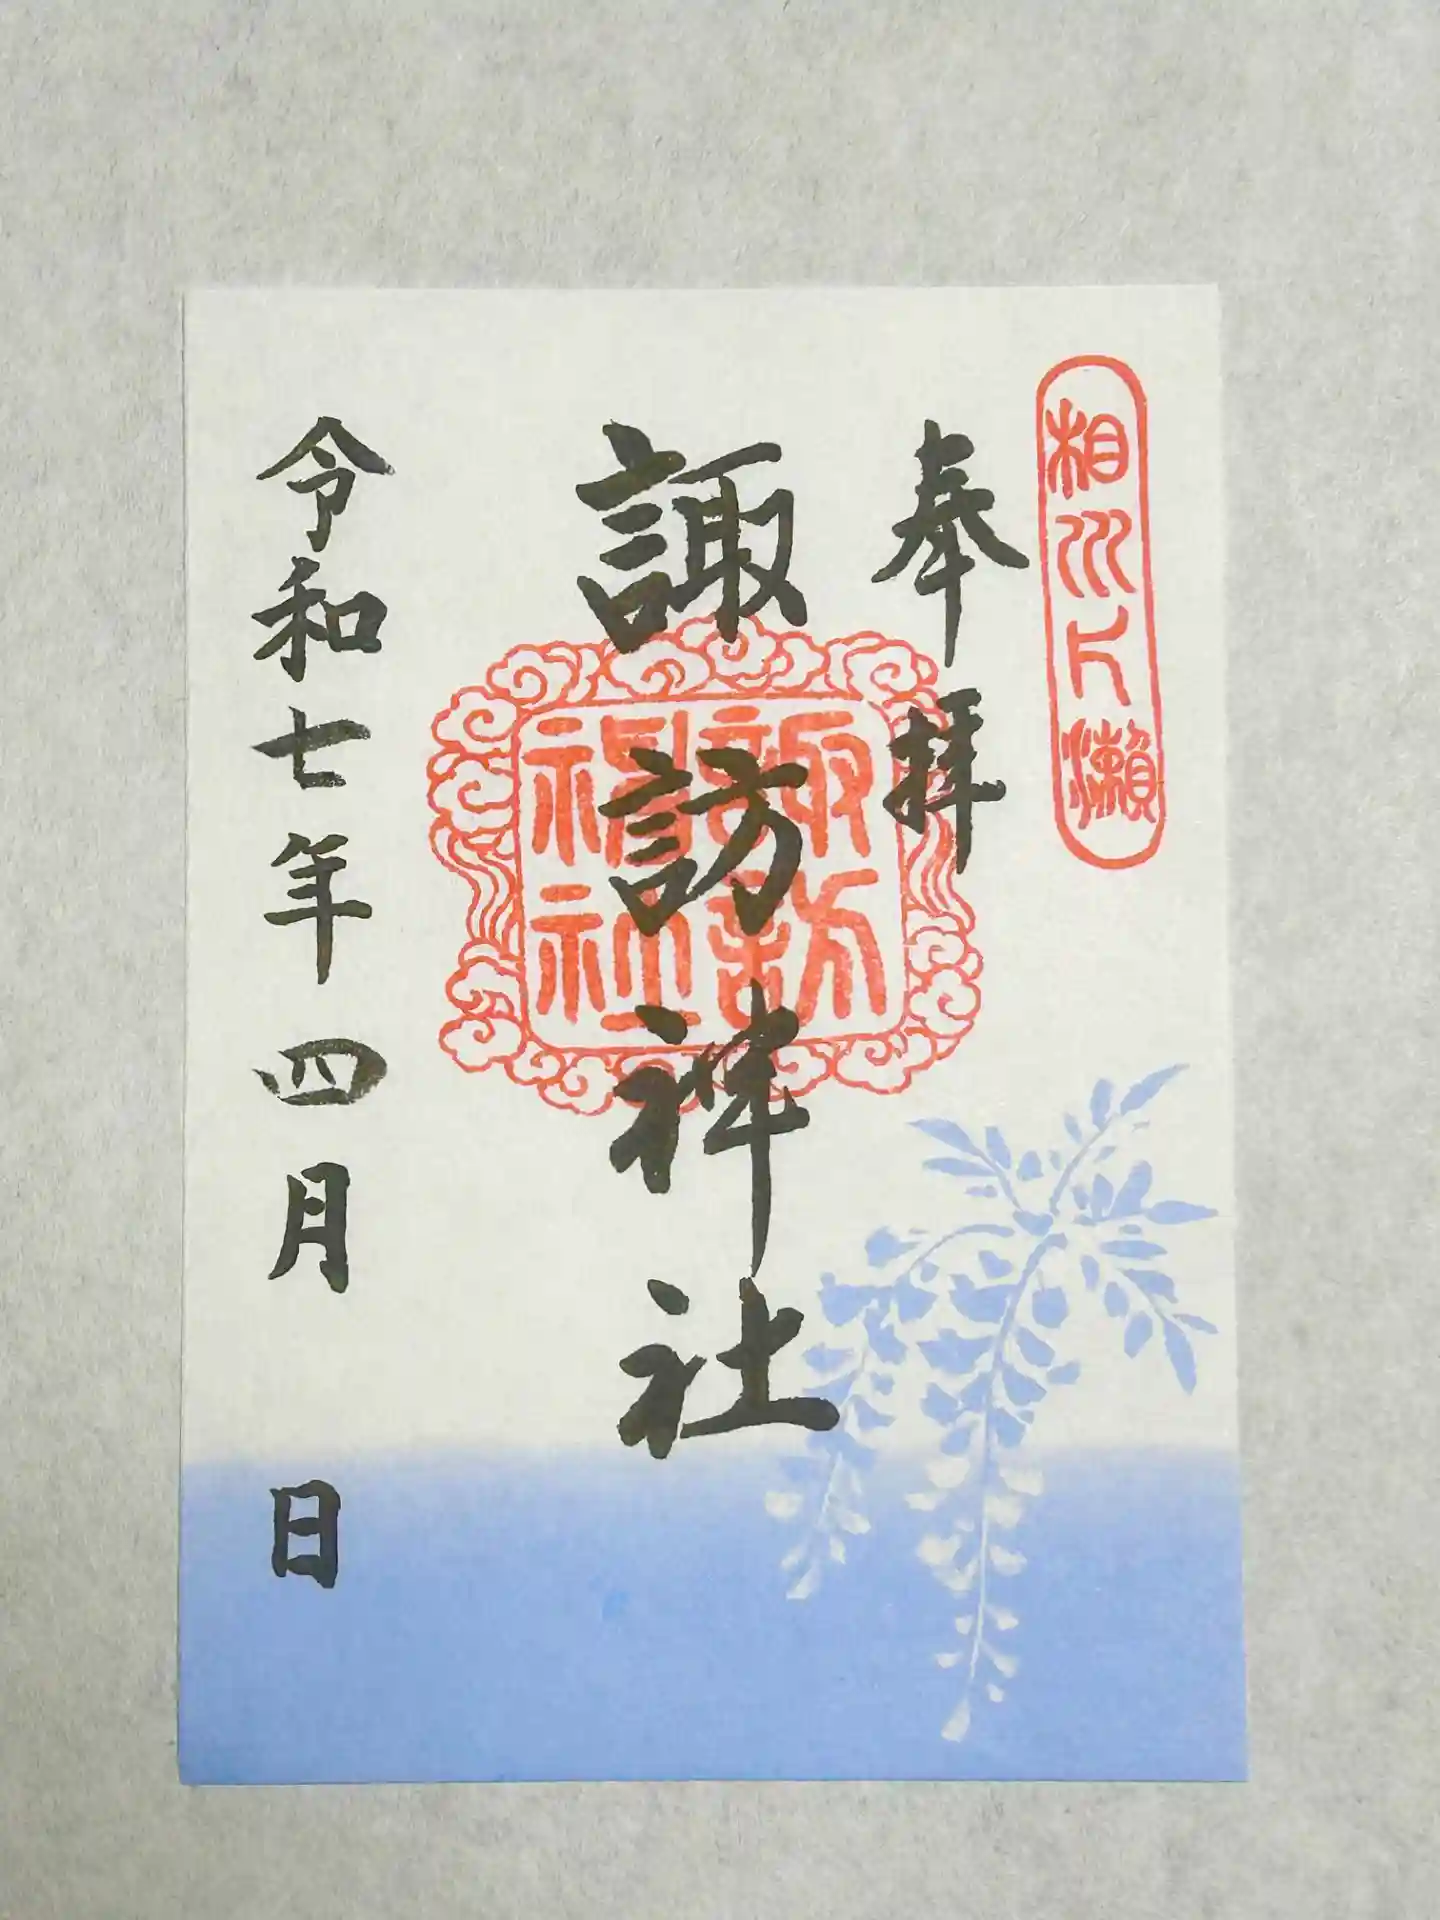 相州片瀬
奉拝
諏訪神社
諏訪
神社
令和七年四月 日